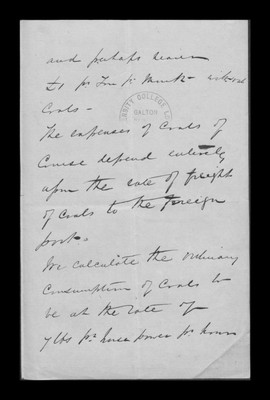 and perhaps leaves
£1 pr Ton pr Month without
Coals -
The expenses of Coals of
Course depend entirely
upon the rate of freight
of Coals to the Foreign
ports.
We calculate the ordinary
Consumption of Coals to
be at the rate of
7 lbs pr horse power pr hour
GALTON